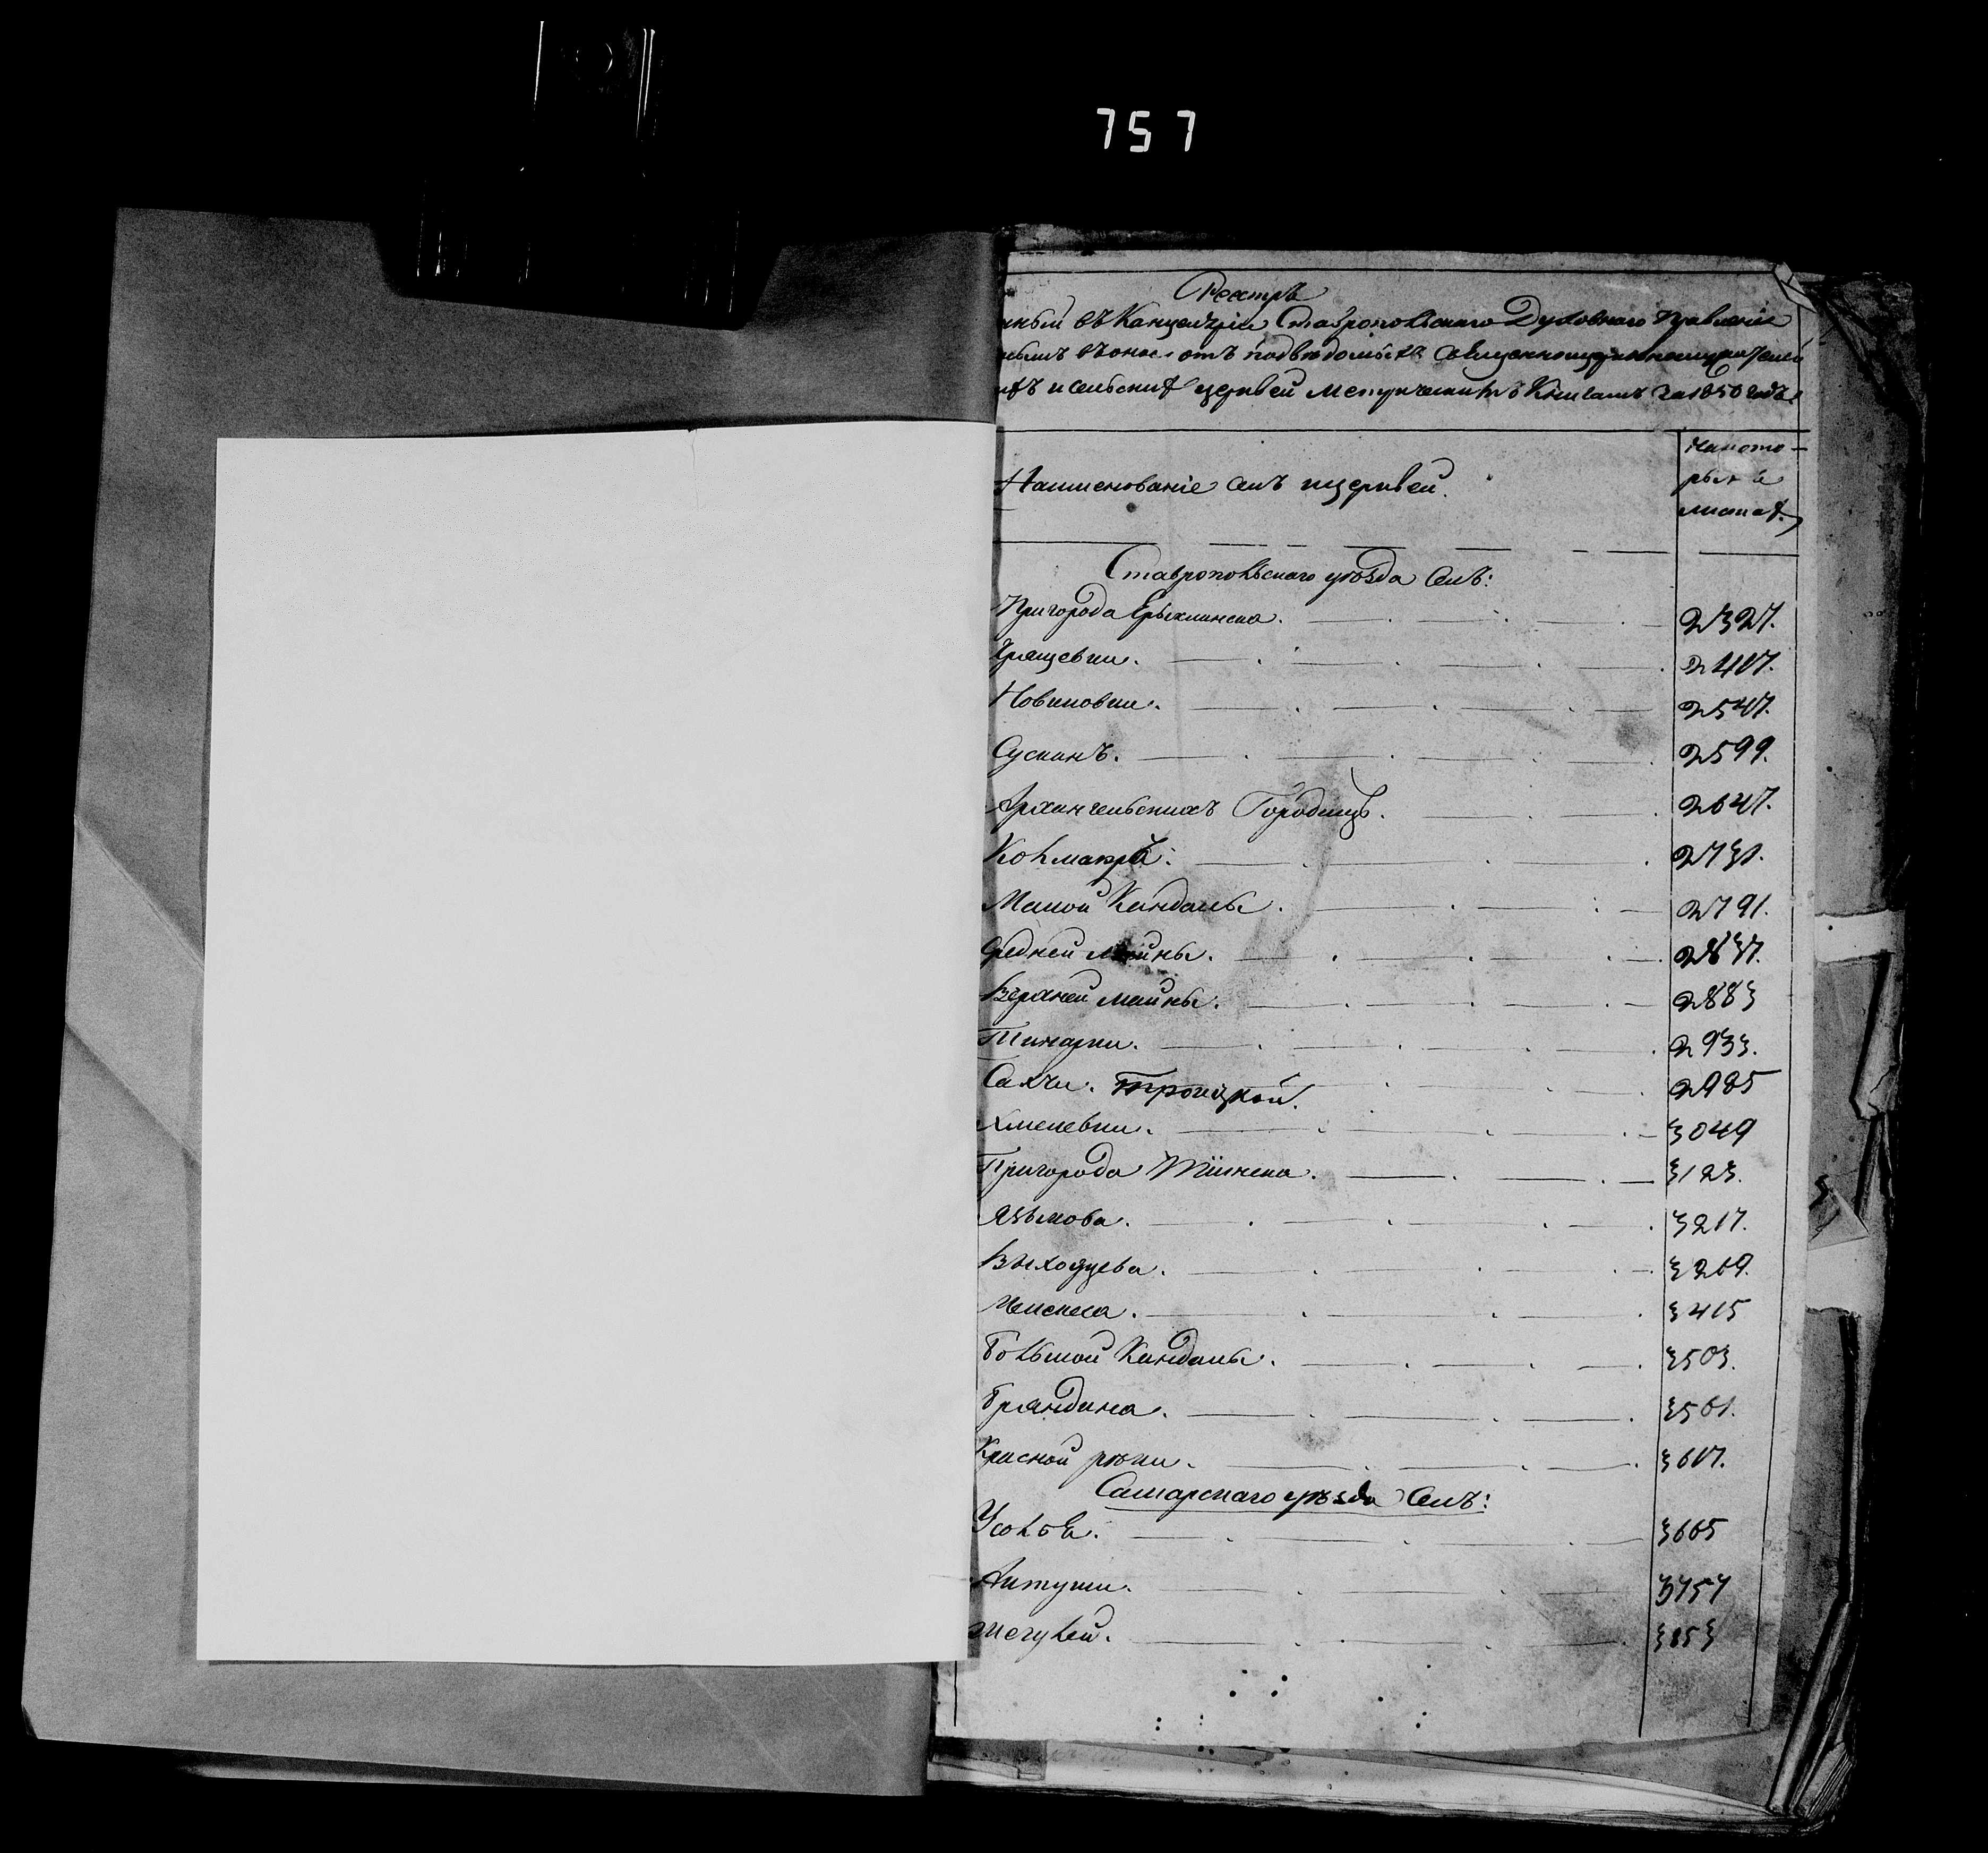 757
Реестръ
нный въ Канцеляріи Ставропольскаго Духовнаго Правленія
нымъ въ оное отъ подведомыхъ
ихъ и сельскихъ церквей Метрическимъ Книгамъ за 1850 годъ.
Наименованіе селъ и церквей.
На кото-
рыхъ
листах.
Ставропольскаго уѣзда Селъ:
Пригорода Ерыклинска. 2327.
Хрящевки. 2417.
Новиковки. 2547.
Сускинъ. 2599.
Архангельскихъ Городищъ. 2647.
Кольмаюръ. 2731.
Малой Кандалы. 2791.
Средней Майны. 2837.
Верхней Майны. 2883
Тинарки. 2933.
Сахчи. Троицкой. 2985
Хмелевки. 3049
Пригорода Тіинска. 3123.
Языкова. 3217.
Выходцева. 3269.
3415
Большой Кандалы. 3503.
Бряндина. 3561.
Красной рѣки. 3617.
Самарскаго уѣзда Селъ:
Усолья. 3665
Актуши. 3757
Жегулей. 3853